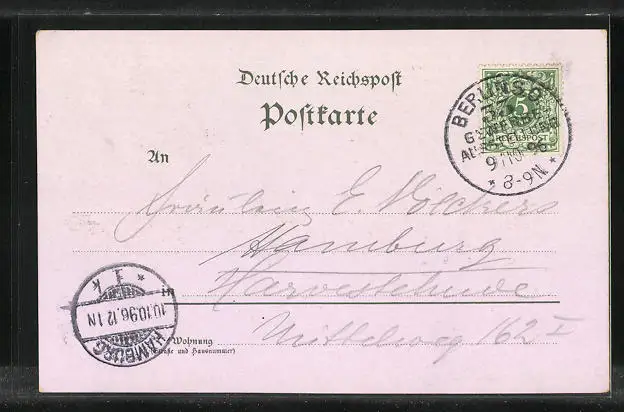 Deutsche Reichspost
Postkarte
BERLIN S.O.
GEWERBE
AUSSTELLUNG
9/10 96
* 8-9N. *
5
REICHSPOST
An
Fräulein E. Völckers
Hamburg
in
Harvestehude
Wohnung
(Straße und Hausnummer)
Mittelweg 162 I
* 1 k
10.10.96.12 1N
HAMBURG